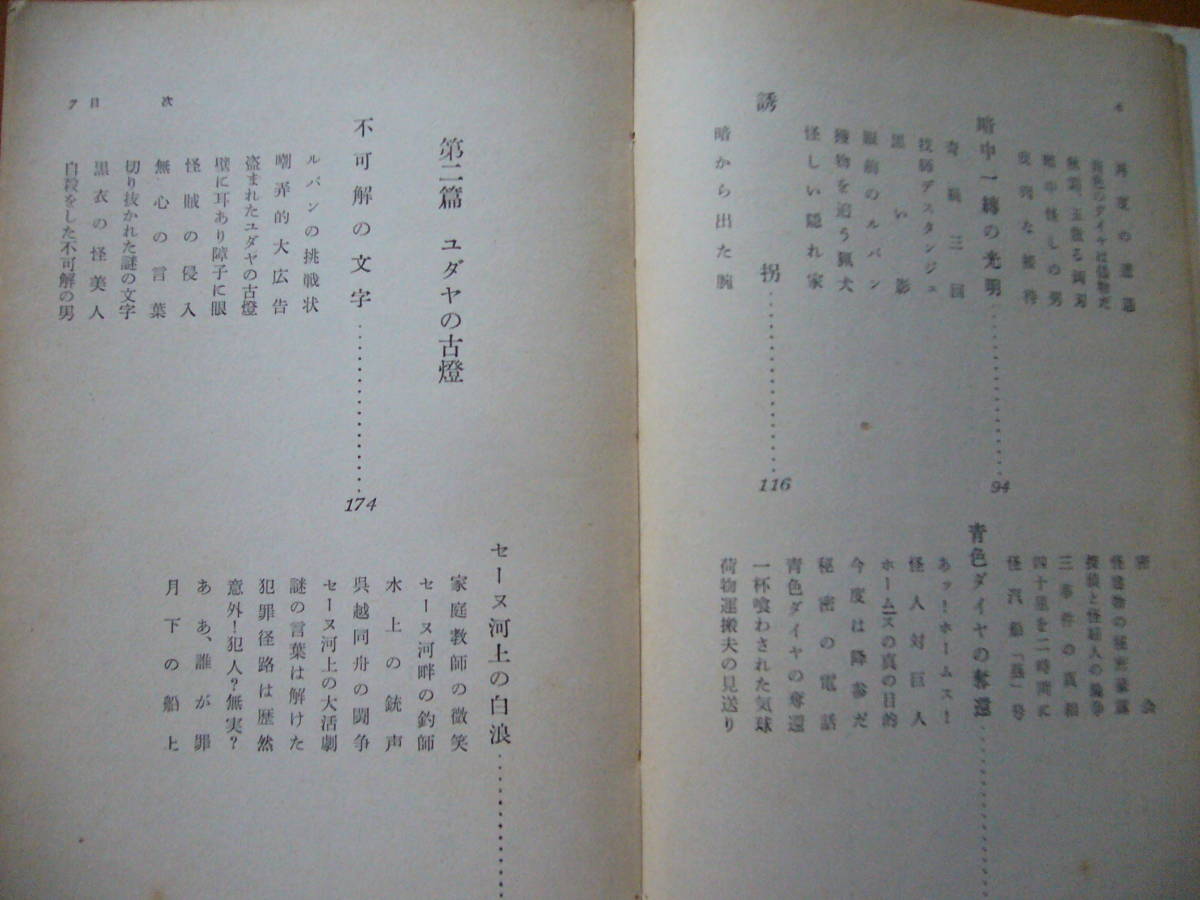 再度の遭遇
青色のダイヤは偽物だ
暗中一縷の光明
94
奇禍三回
技師デスタンジュ
黒い影
眼前のルパン
獲物を追う猟犬
怪しい隠れ家
誘拐
116
暗から出た腕
密会
怪建物の秘密暴露
探偵と怪婦人の論争
三事件の真相
四十里を二時間に
怪汽船「燕」号
青色ダイヤの奪還
あッ!ホームス!
怪人対巨人
ホームズの真の目的
今度は降参だ
秘密の電話
青色ダイヤの奪還
一杯喰わされた気球
荷物運搬夫の見送り
第二篇 ユダヤの古燈
不可解の文字
174
ルパンの挑戦状
嘲弄的大広告
盗まれたユダヤの古燈
壁に耳あり障子に眼
怪賊の侵入
無心の言葉
切り抜かれた謎の文字
黒衣の怪美人
自殺をした不可解の男
セーヌ河上の白浪
家庭教師の微笑
セーヌ河畔の釣師
水上の銃声
呉越同舟の闘争
セーヌ河上の大活劇
謎の言葉は解けた
犯罪径路は歴然
意外!犯人?無実?
ああ、誰が罪
月下の船上
7 目次